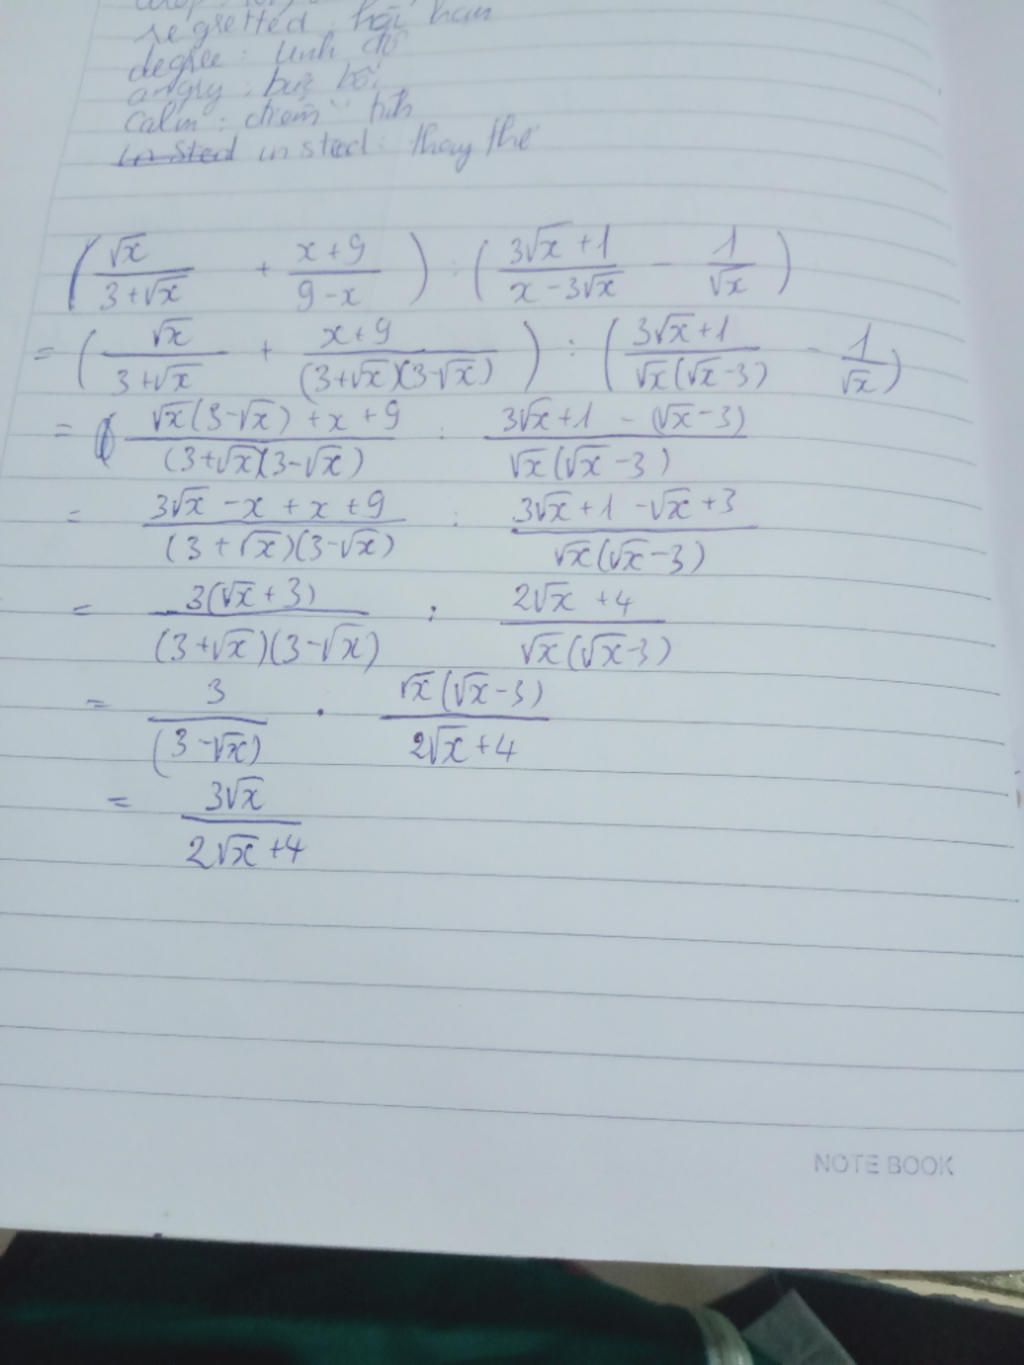 regretted : hối hận
degree :
angry : bực bội
calm : điềm tĩnh
insted insted : thay thế
(√x/(3+√x) + (x+9)/(9-x)) : ((3√x+1)/(x-3√x) - 1/√x)
= (√x/(3+√x) + (x+9)/((3+√x)(3-√x))) : ((3√x+1)/(√x(√x-3)) - 1/√x)
= (√x(3-√x)+x+9)/((3+√x)(3-√x)) : (3√x+1-(√x-3))/(√x(√x-3))
= (3√x-x+x+9)/((3+√x)(3-√x)) : (3√x+1-√x+3)/(√x(√x-3))
= 3(√x+3)/((3+√x)(3-√x)) : (2√x+4)/(√x(√x-3))
= 3/(3-√x) . √x(√x-3)/(2√x+4)
= 3√x/(2√x+4)
NOTE BOOK